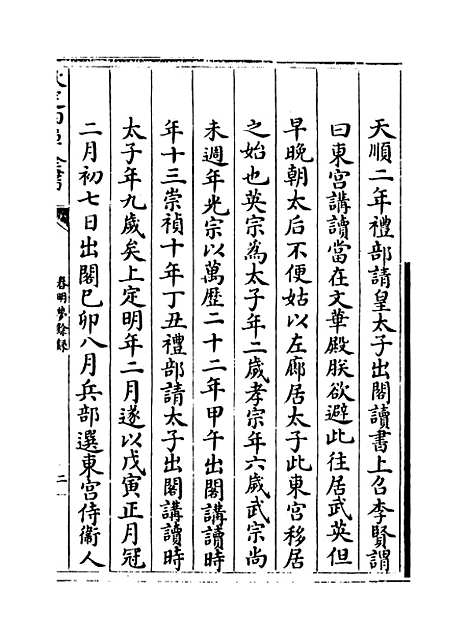 天順二年禮部請皇太子出閣讀書上召李賢謂
曰東宮講讀當在文華殿朕欲避此往居武英但
早晚朝太后不便姑以左廊居太子此東宮移居
之始也英宗爲太子年二歲孝宗年六歲武宗尚
未週年光宗以萬歷二十二年甲午出閣講讀時
年十三崇禎十年丁丑禮部請太子出閣講讀時
太子年九歲矣上定明年二月遂以戊寅正月冠
二月初七日出閣己卯八月兵部選東宮侍衛人
欽定四庫全書
春明夢餘録
二